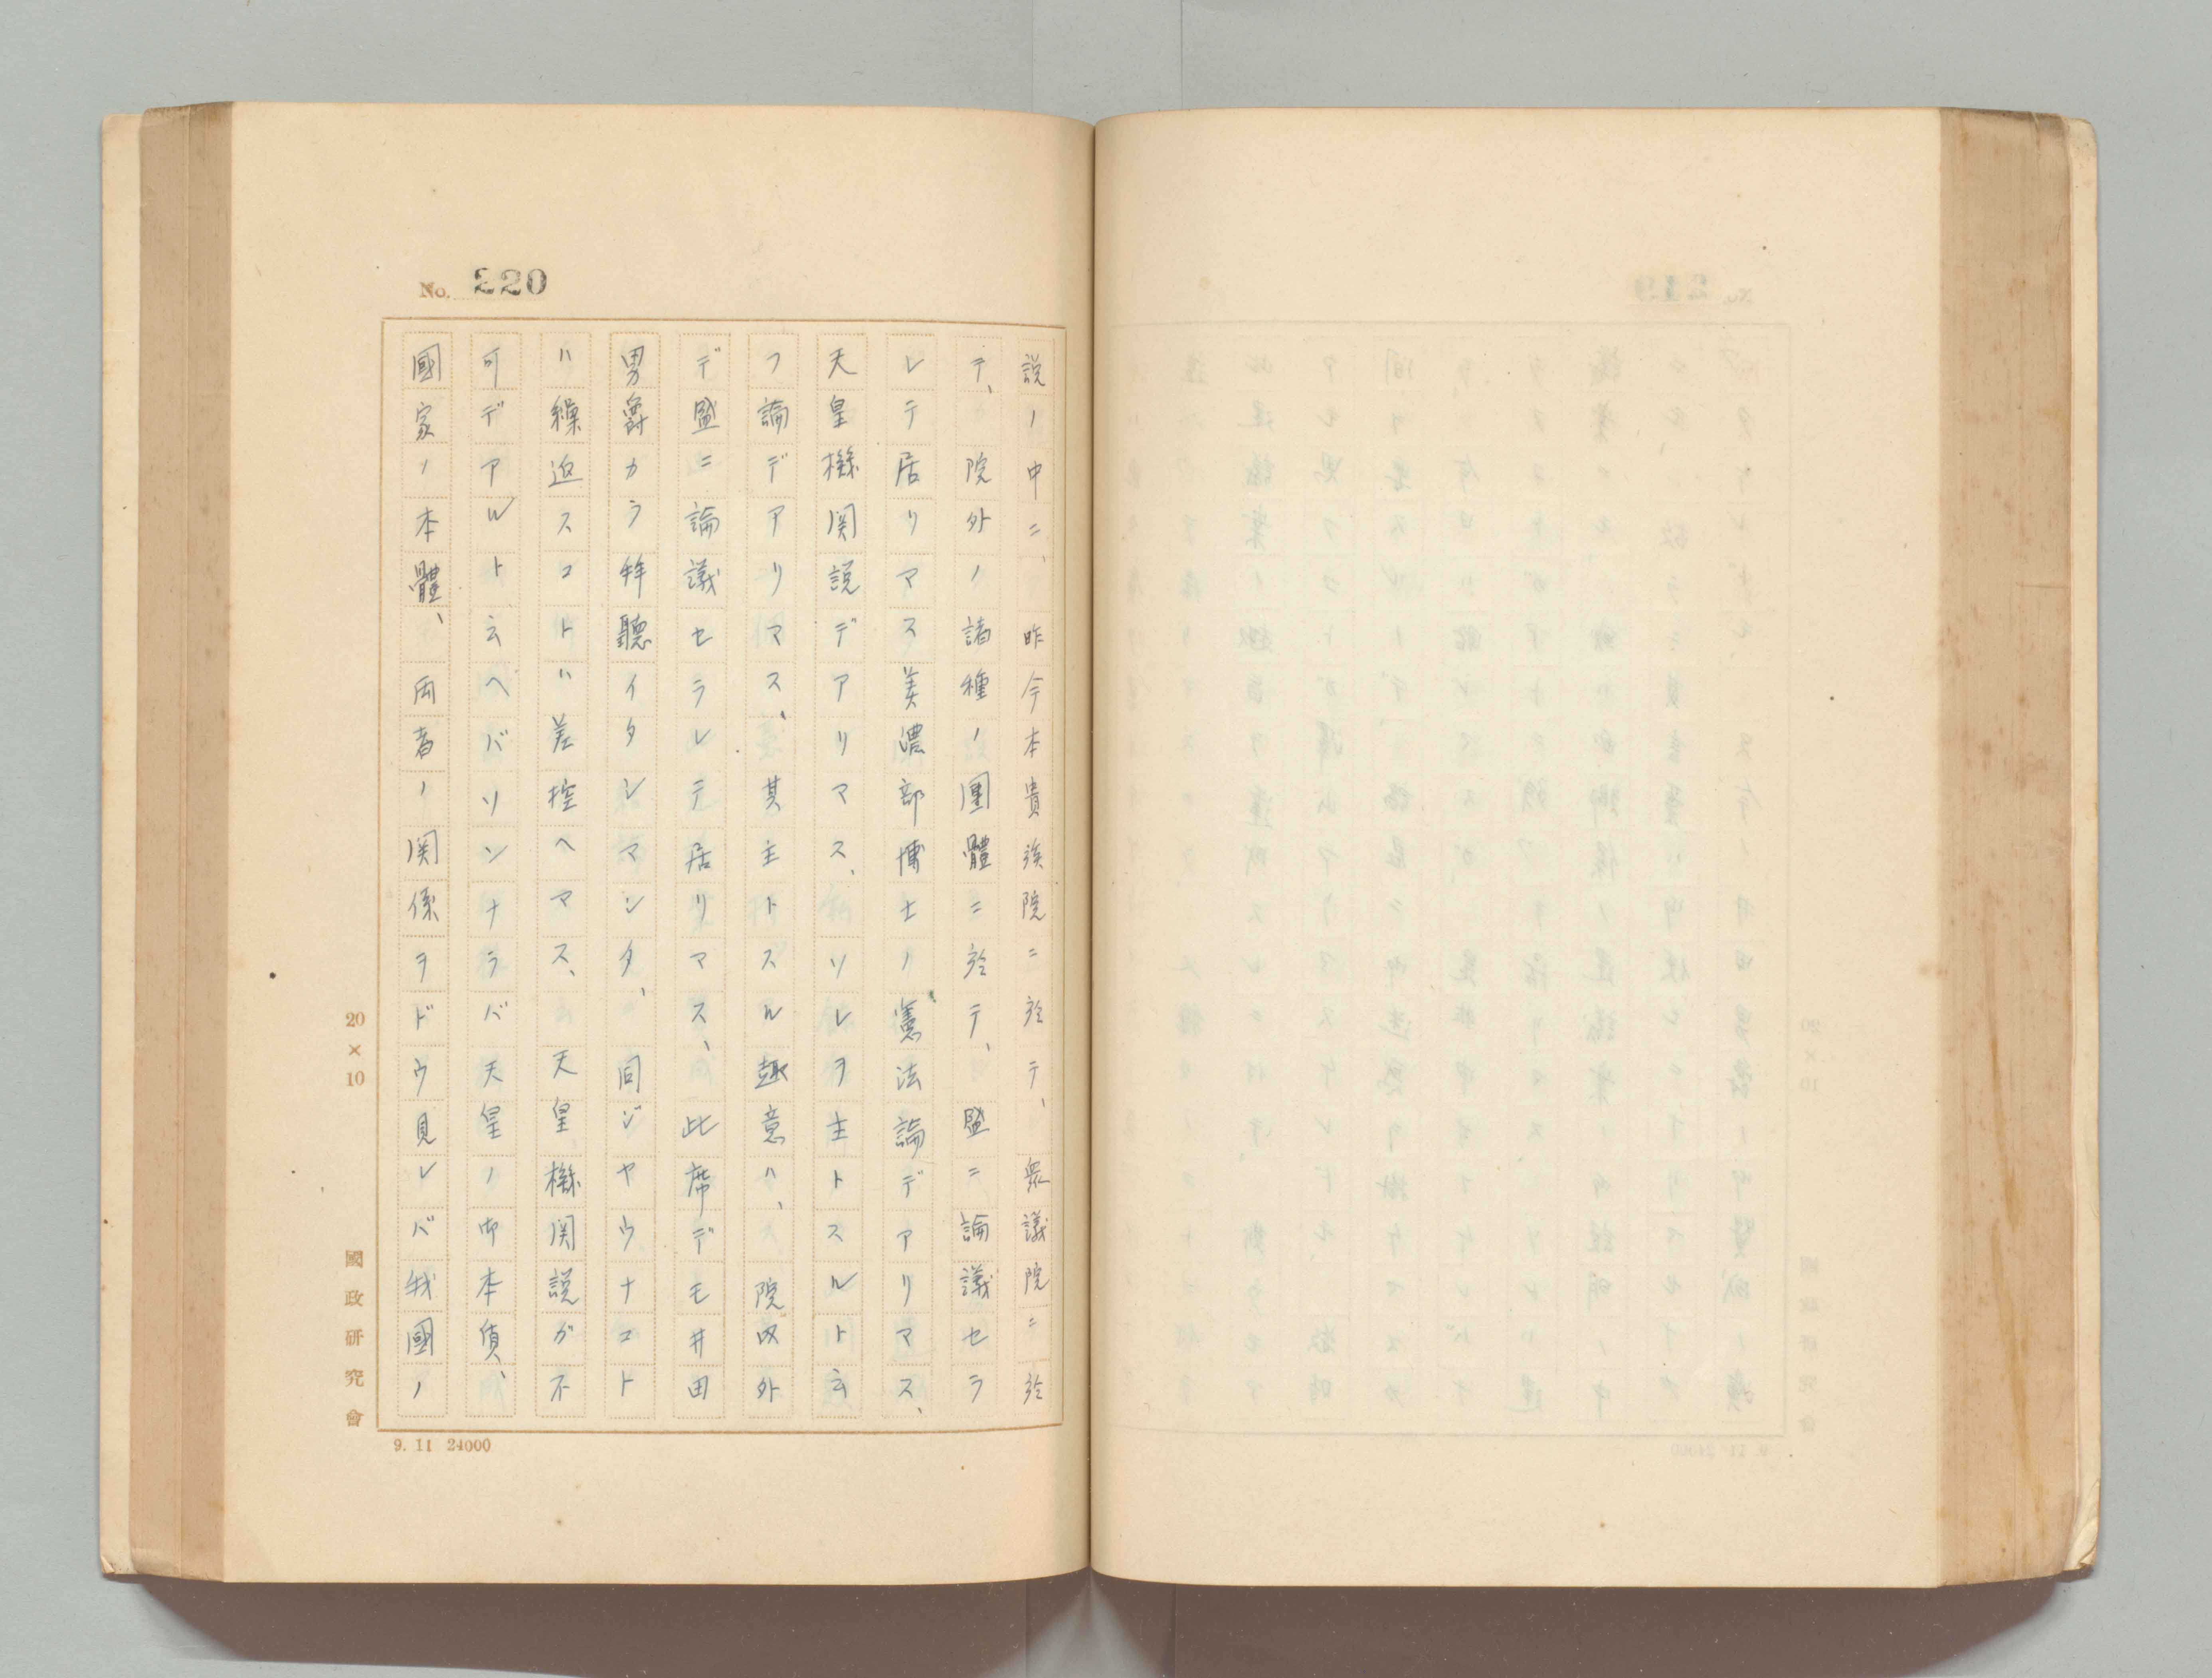 No. 220
説ノ中ニ、昨今本貴族院ニ於テ、衆議院ニ於
テ、院外ノ諸種ノ團體ニ於テ、盛ニ論議セラ
レテ居リマス美濃部博士ノ憲法論デアリマス、
天皇機関説デアリマス、ソレヲ主トスルト云
フ論デアリマス、其主トスル趣意ハ、院内外
デ盛ニ論議セラレテ居リマス、此席デモ井田
男爵カラ拜聽イタシマシタ、同ジヤウナコト
ハ繰返スコトハ差控ヘマス、天皇機関説ガ不
可デアルト云ヘバソンナラバ天皇ノ御本質、
國家ノ本體、両者ノ関係ヲドウ見レバ我國ノ
20×10
國政研究會
9. 11 24000